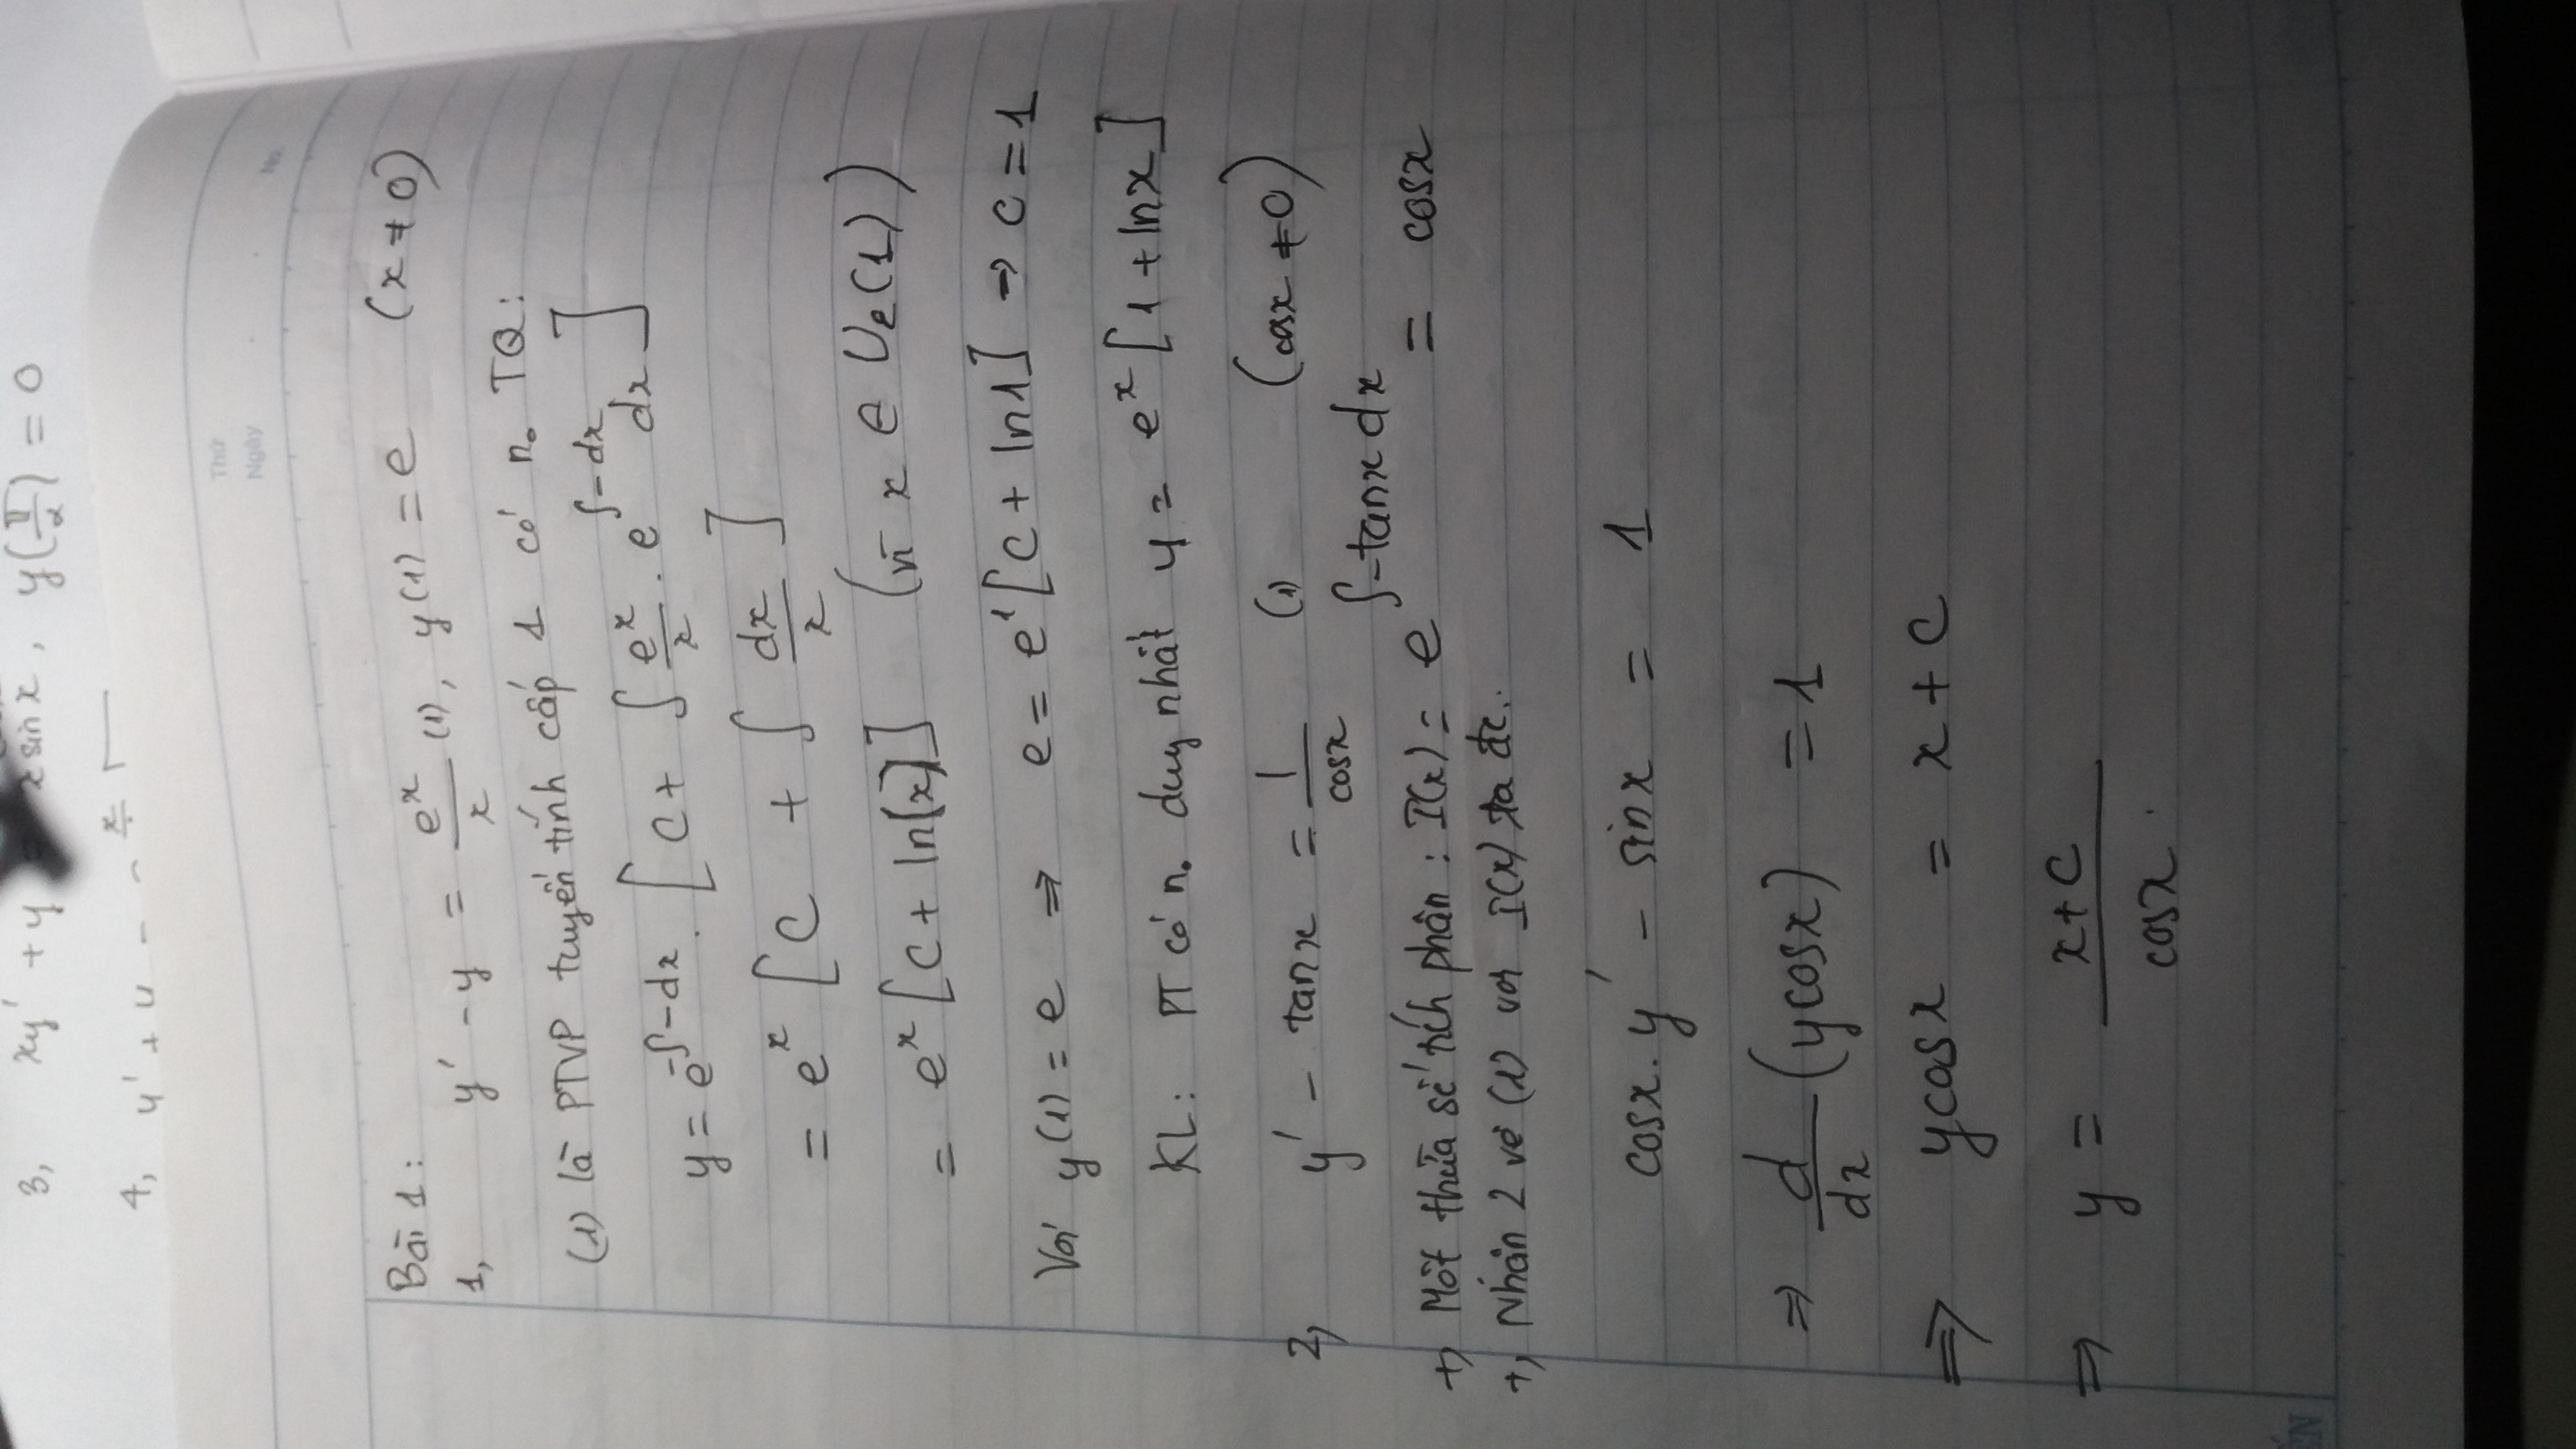 3, xy' + y = x sin x, y(π/2) = 0
4, y' +
Thứ
Ngày
No.
Bài 1:
1, y' - y = e^x/x (1), y(1) = e (x ≠ 0)
(1) là PTVP tuyến tính cấp 1 có n₀ TQ:
y = e^{-∫-dx} . [C + ∫ e^x/x . e^{∫-dx} dx]
= e^x [C + ∫ dx/x]
= e^x [C + ln(x)] (vì x ∈ Uε(1))
Với y(1) = e ⇒ e = e^1 [C + ln1] ⇒ C = 1
KL: PT có n₀ duy nhất y = e^x [1 + lnx]
2, y' - tanx = 1/cosx (1) (cosx ≠ 0)
+, Một thừa số tích phân: I(x) = e^{∫-tanx dx} = cosx
+, Nhân 2 vế (1) với I(x) ta đc..
cosx.y' - sinx = 1
⇒ d/dx (ycosx) = 1
⇒ ycosx = x + C
⇒ y = x+C/cosx .
ẾN